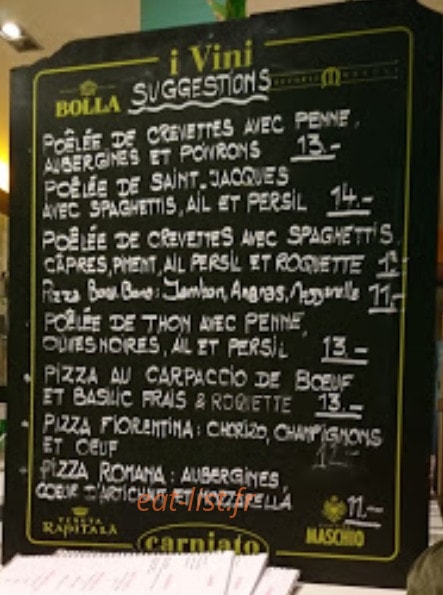 i Vini
BOLLA
SUGGESTIONS
POÊLÉE DE CREVETTES AVEC PENNE,
AUBERGINES ET POIVRONS 13.-
POÊLÉE DE SAINT-JACQUES
AVEC SPAGHETTIS, AIL ET PERSIL 14.-
POÊLÉE DE CREVETTES AVEC SPAGHETTIS,
CÂPRES, PIMENT, AIL PERSIL ET ROQUETTE
Pizza Bora Bora: Jambon, Ananas, Mozzarella 11,-
POÊLÉE DE THON AVEC PENNE,
OLIVES NOIRES, AIL ET PERSIL 13.-
PIZZA AU CARPACCIO DE BOEUF
ET BASILIC FRAIS & ROQUETTE 13.-
PIZZA FIORENTINA: CHORIZO, CHAMPIGNONS
ET OEUF 12.-
PIZZA ROMANA: AUBERGINES,
COEUR D'ARTICHAUT ET MOZZARELLA 11.-
eat-list.fr
TENUTA
RAPITALÀ
carniato
MASCHIO